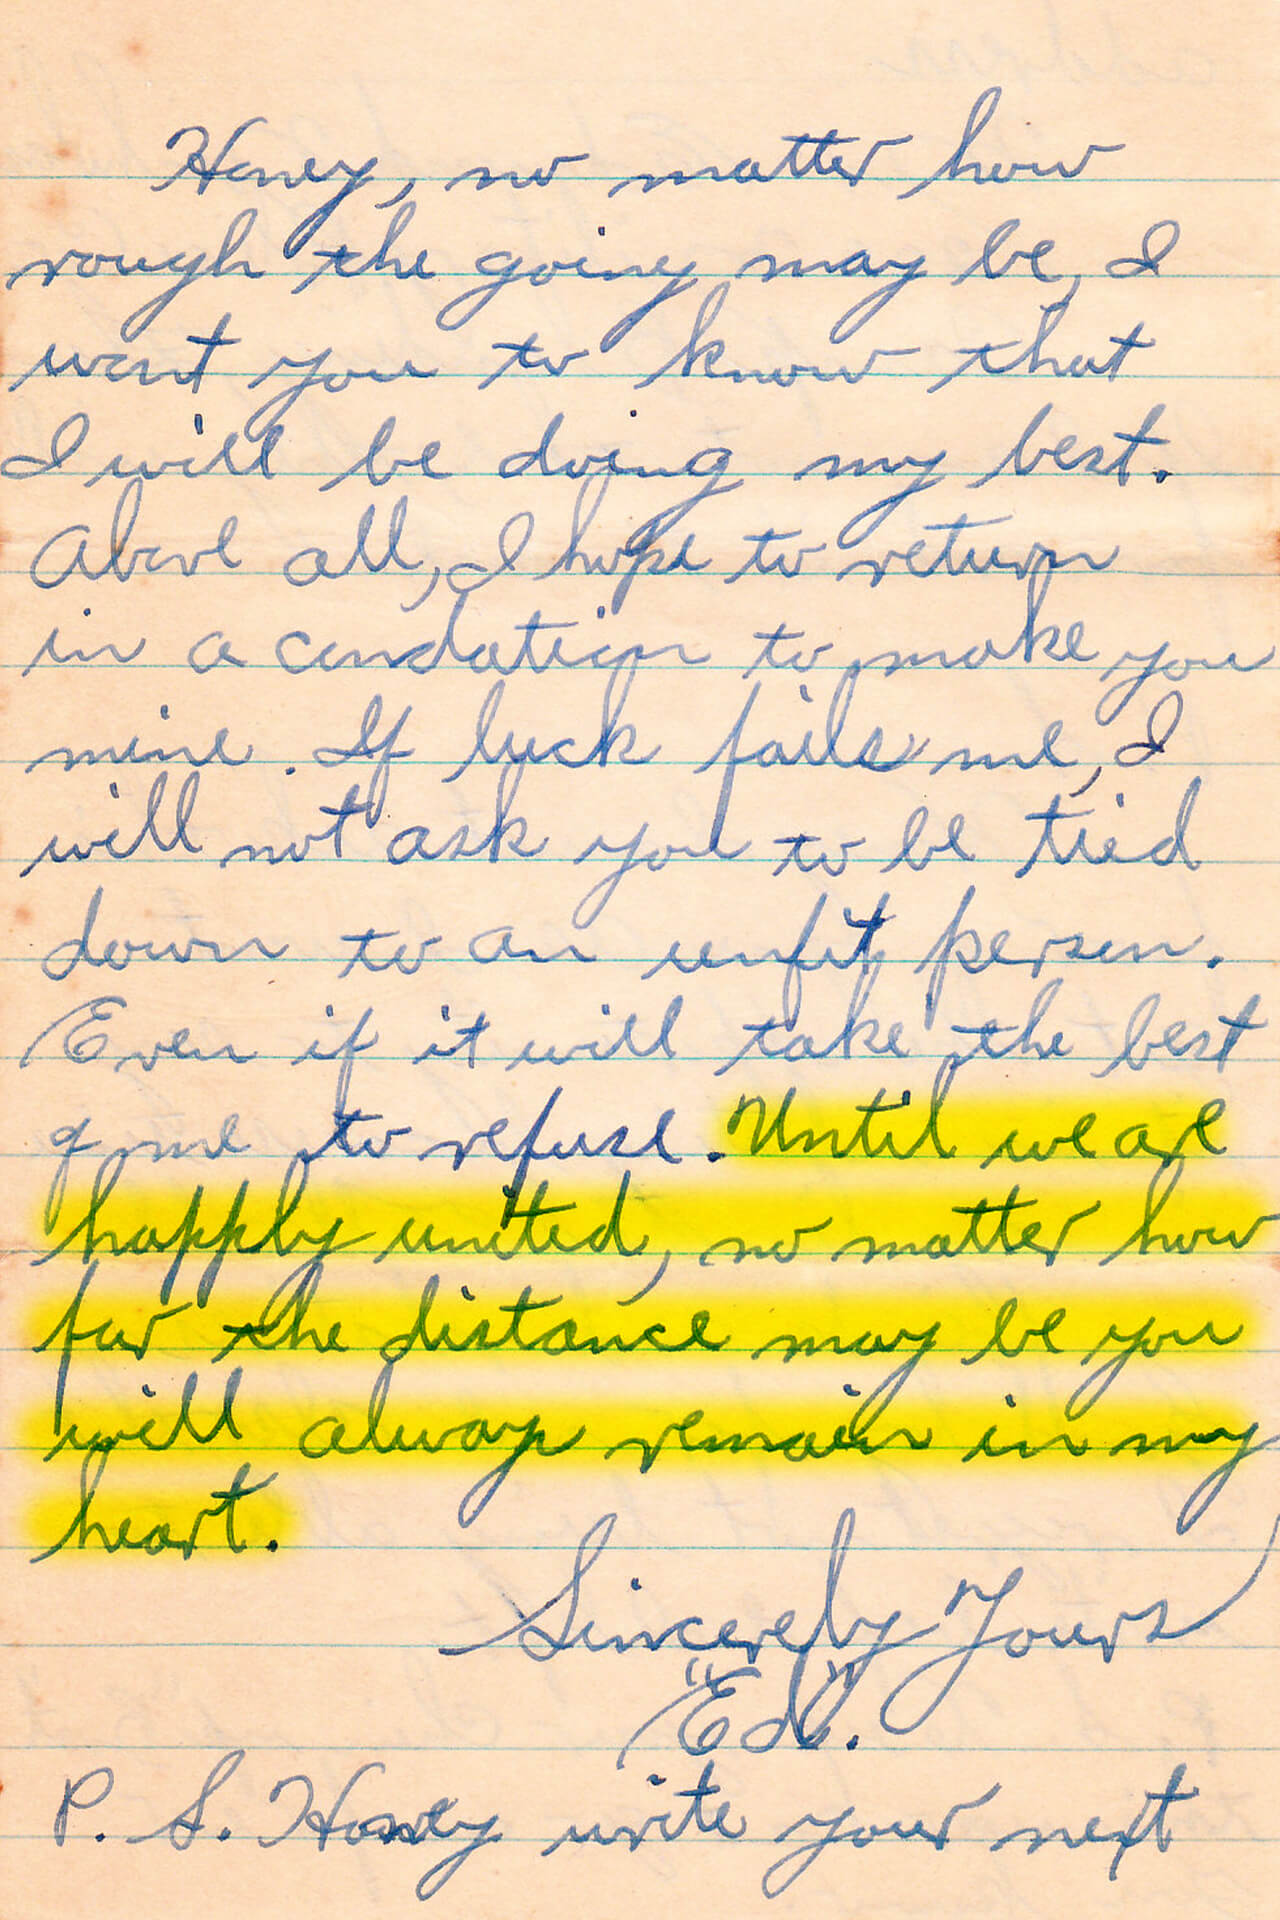 Honey, no matter how
rough the going may be, I
want you to know that
I will be doing my best.
Above all, I hope to return
in a condation to make you
mine. If luck fails me, I
will not ask you to be tied
down to an unfit person.
Even if it will take the best
of me to refuse. Until we are
happly united, no matter how
far the distance may be you
will always remain in my
heart.
Sincerely Yours
"Ed".
P. S. Honey write your next